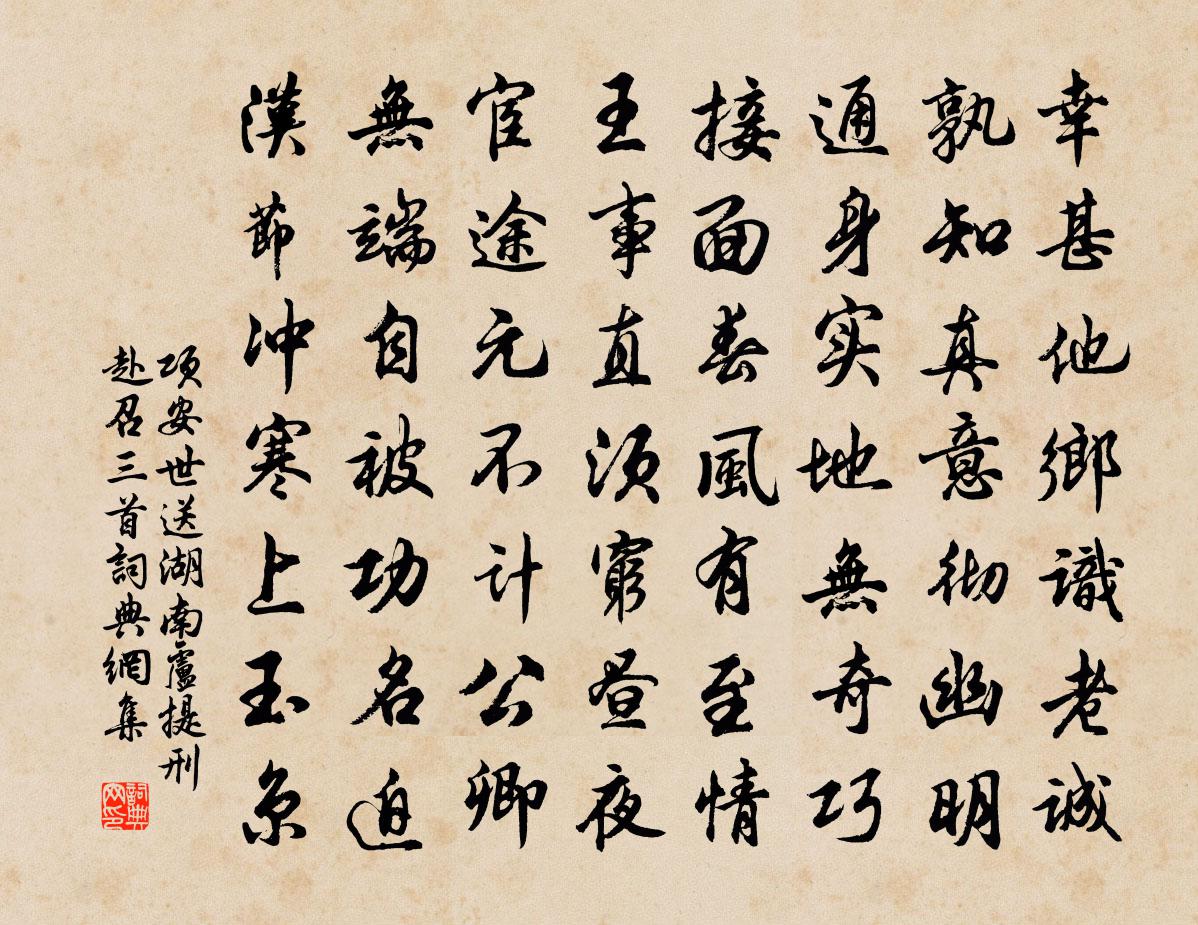 幸甚他鄉識老誠
孰知真意彻幽明
通身实地無奇巧
接面春風有至情
王事直須窮昼夜
宦途元不计公卿
無端自被功名迫
漢節冲寒上玉京
項安世送湖南盧提刑
赴召三首詞典網集
詞典
网印